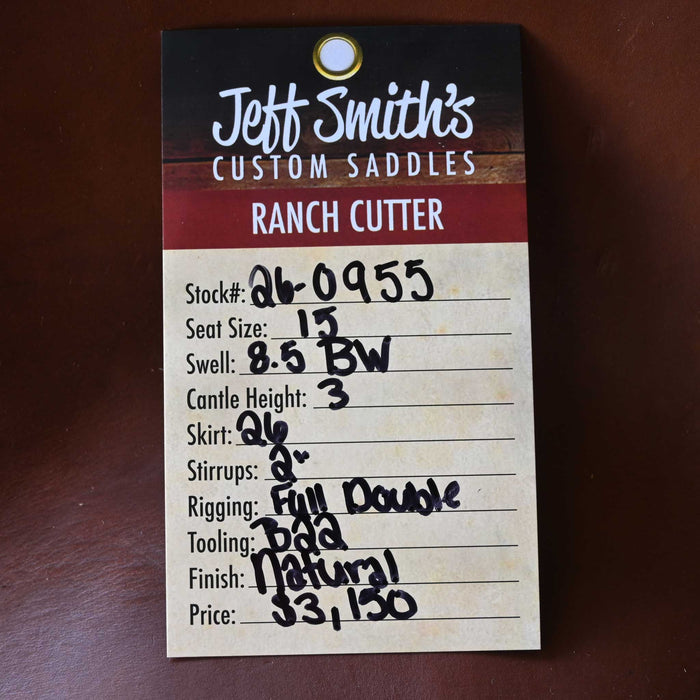 Jeff Smith's
CUSTOM SADDLES
RANCH CUTTER
Stock#: 26-0955
Seat Size: 15
Swell: 8.5 BW
Cantle Height: 3
Skirt: 26
Stirrups: 2"
Rigging: Full Double
Tooling: B22
Finish: Natural
Price: $3,150